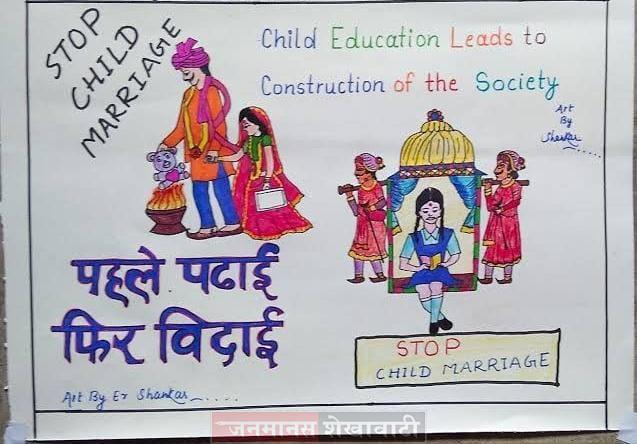 STOP
CHILD
MARRIAGE
Child Education Leads to
Construction of the Society
Art
By
Shankar
पहले पढाई
फिर विदाई
STOP
CHILD MARRIAGE
Art By Er Shankar
जनमानस शेखावाटी